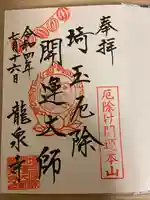 奉拝
厄除け開運本山
埼玉厄除
開運大師
令和四年
七月二十六日
龍泉寺